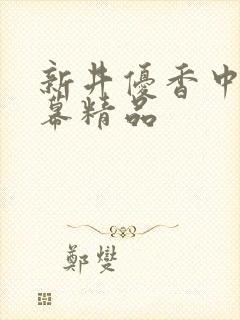 新井優香中
幕精品
鄭燮